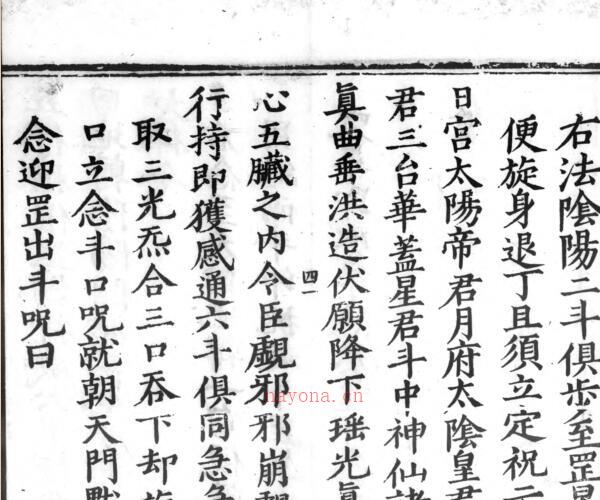 右法陰陽二斗俱步至罡
便旋身退丁且須立定祝
日宮太陽帝君月府太陰皇君
君三台華蓋星君斗中神仙諸
眞曲垂洪造伏願降下瑤光眞
四一
心五臟之內令臣覷邪邪崩
行持即獲感通六斗俱同急急
取三光炁合三口吞下却
口立念斗口呪就朝天門默
念迎罡出斗呪曰
nayona.cn